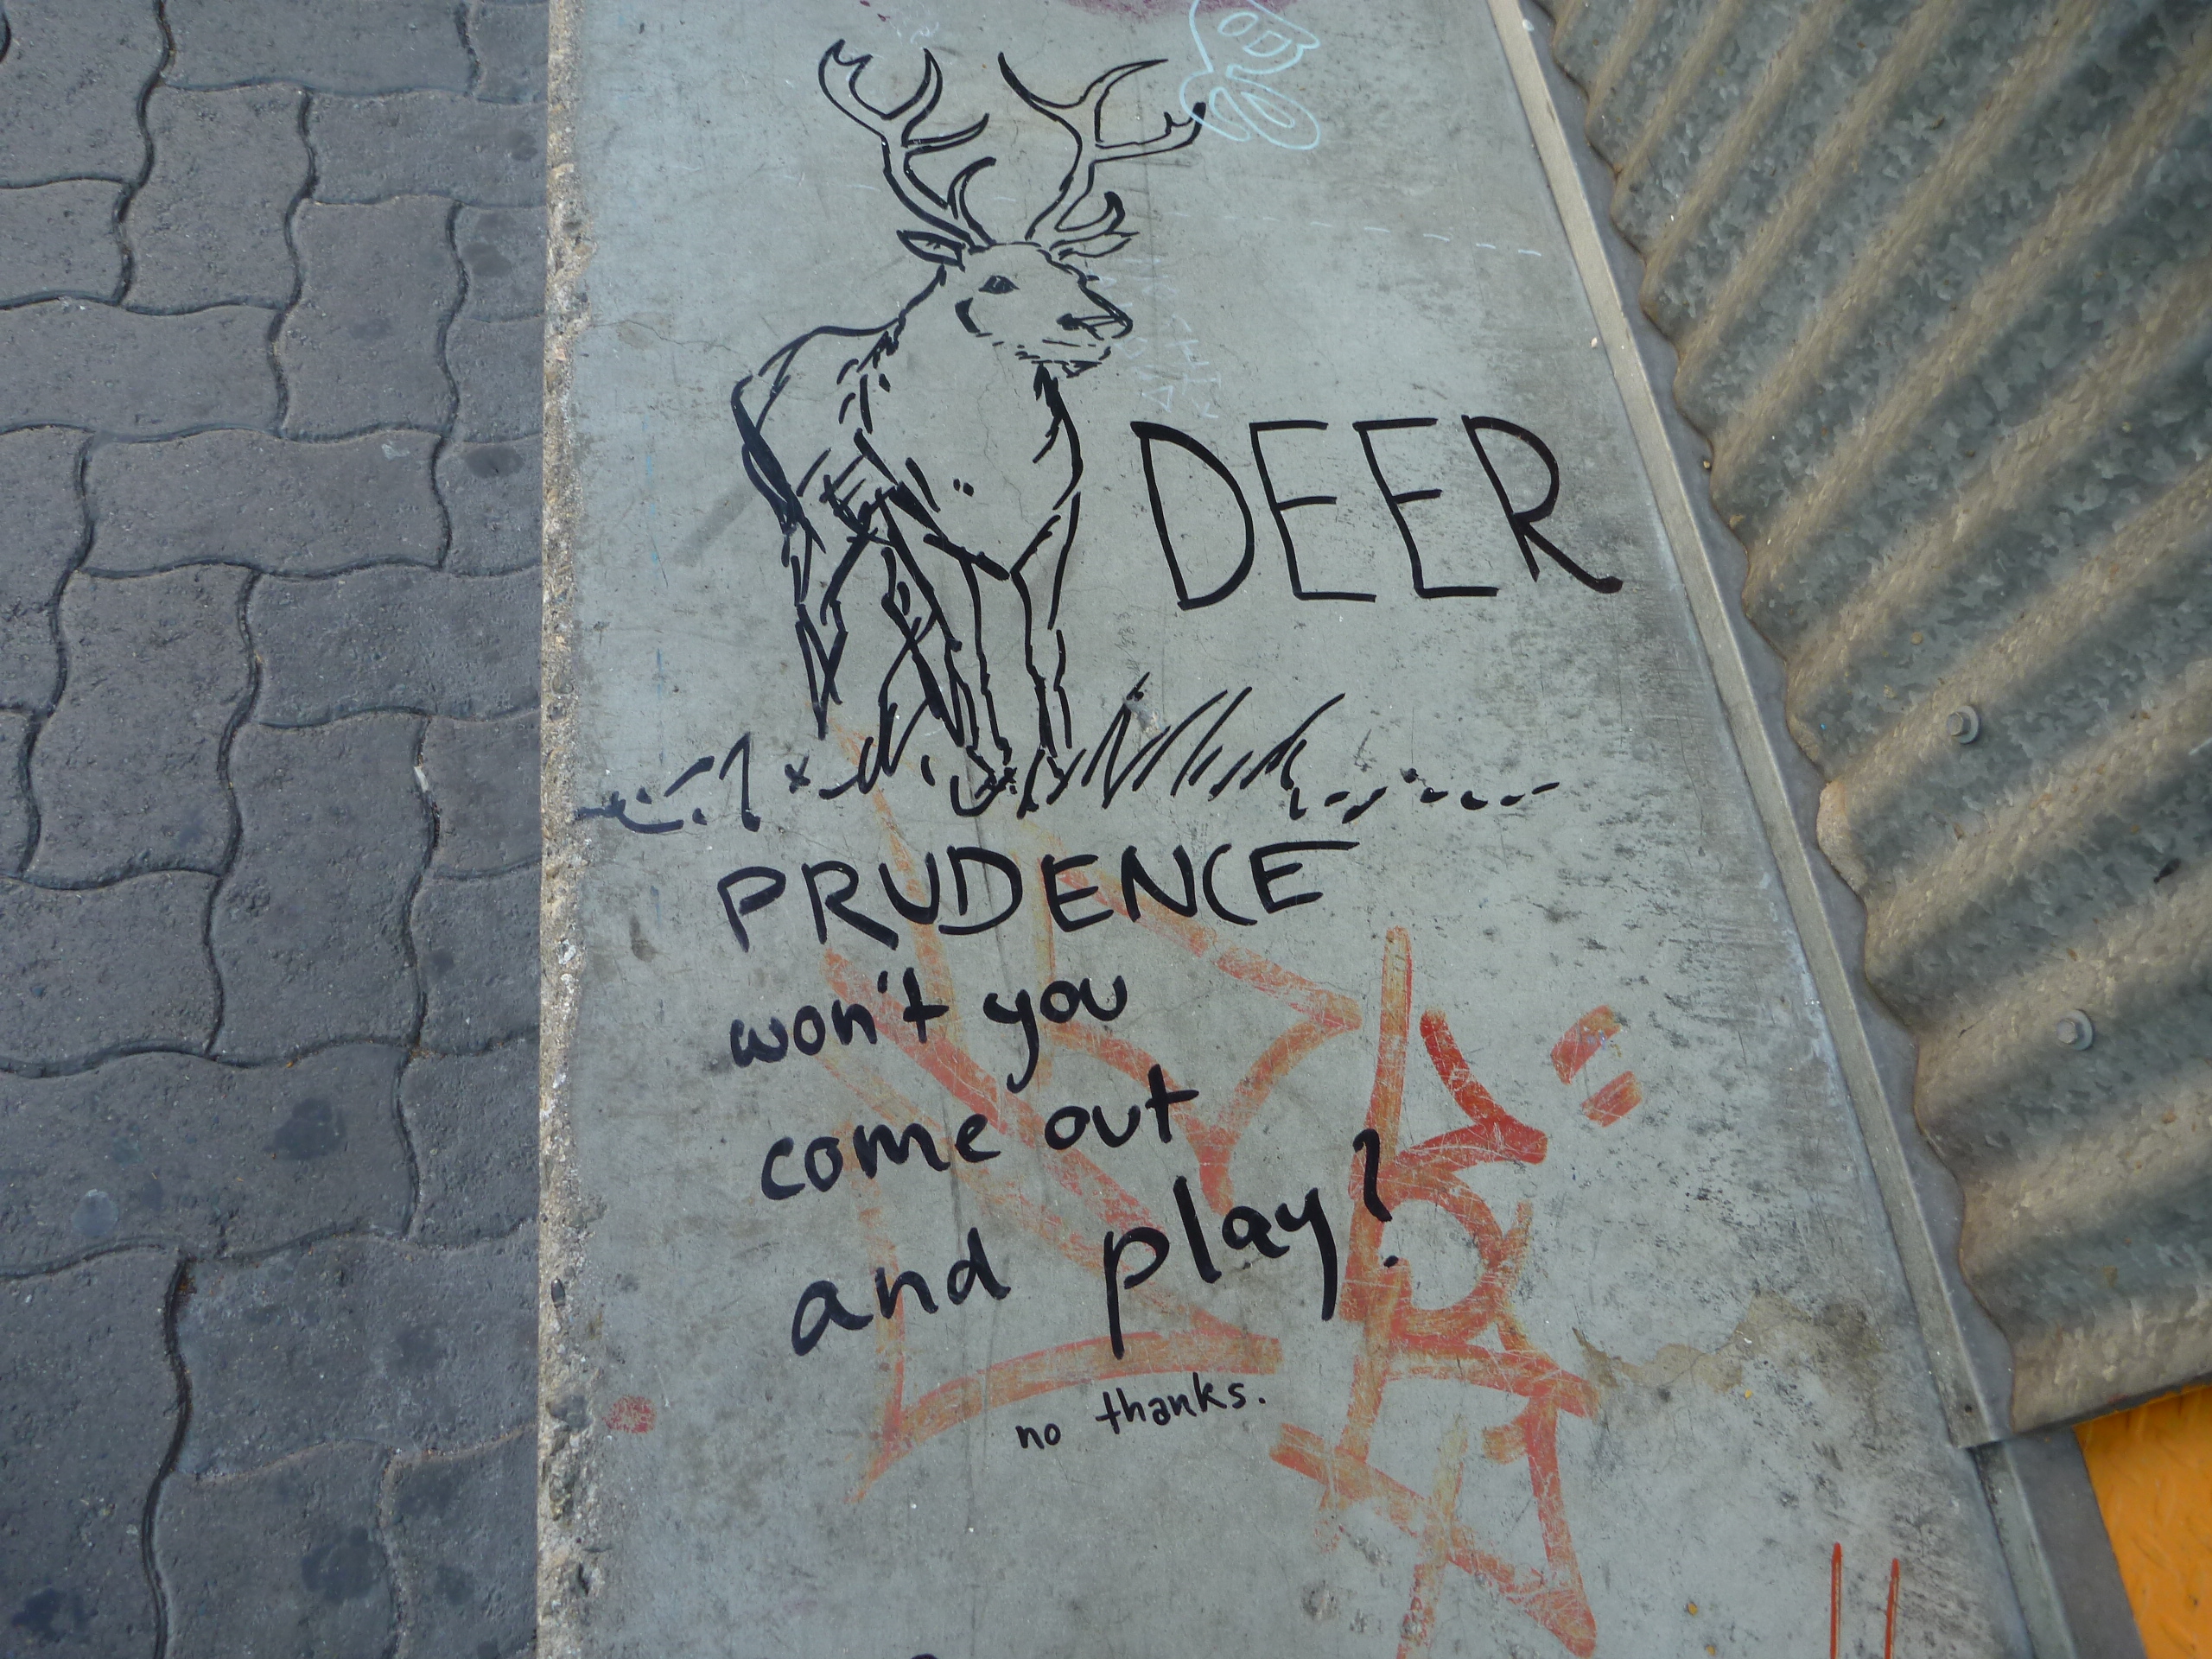 DEER
PRUDENCE
won't you
come out
and play?
no thanks.